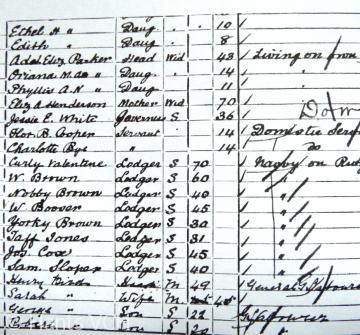 Ethel H " Daug. 10
Edith " Daug 8
Adel Eliz Parker Head Wid 43 Living on own
Oriana M. " Daug. 14
Phyllis A. N " Daug. 11
Eliz A Henderson Mother Wid 70
Jessie E. White Governess S 36
Flor. B. Cooper Servant 14 Domestic Serv
Charlotte Bye " 14 do
Curly Valentine Lodger S 70 Navvy on
W. Brown Lodger S 60 "
Nobby Brown Lodger S 40 "
W. Hoover Lodger S 45 "
Yorky Brown Lodger S 30 "
Taff Jones Lodger S 31 "
Jos. Cox Lodger S 45 "
Sam Sloper Lodger S 40 "
Henry Head M 49 General Labourer
Sarah " Wife M 45
George " Son S 22
Son S 20